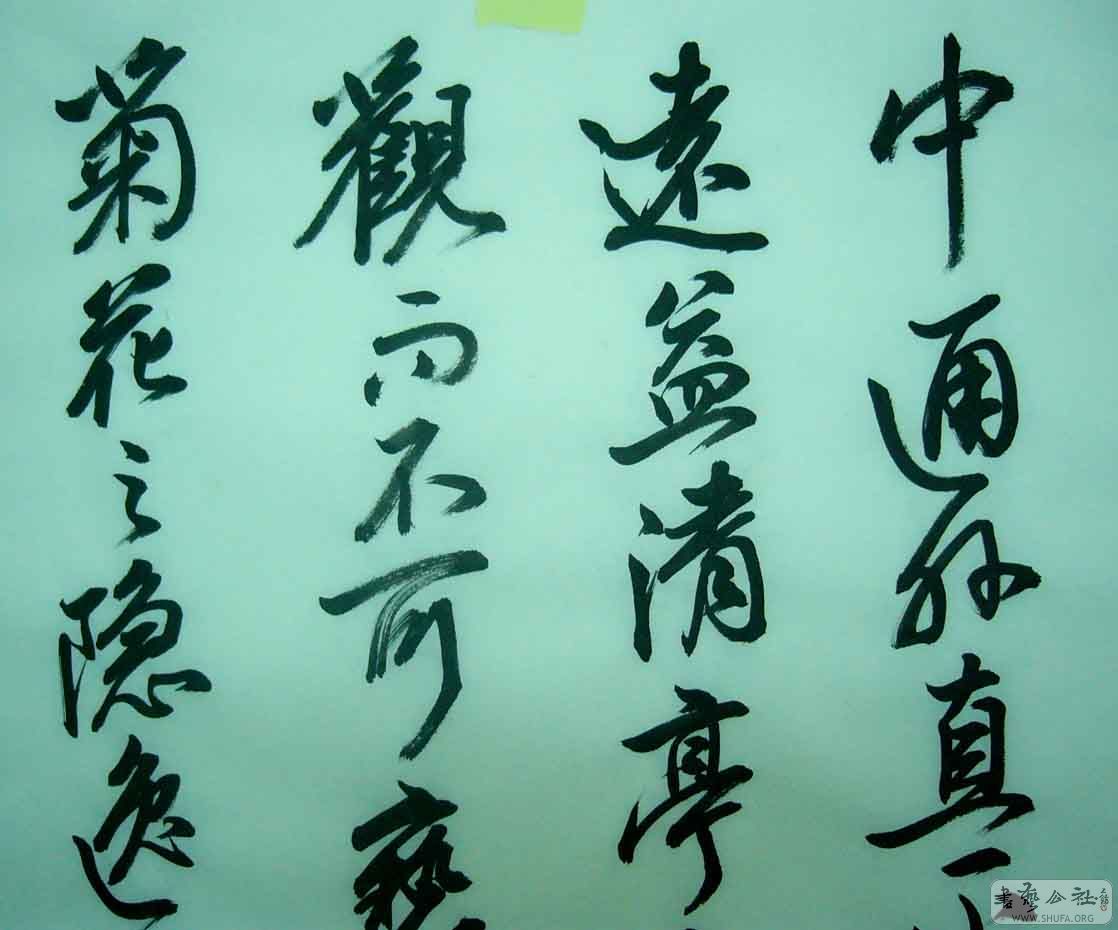 中通外直
遠益清亭
觀而不可褻
菊花之隐逸
書藝公社
WWW.SHUFA.ORG